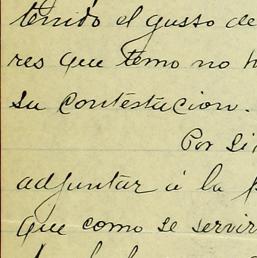 tenido el gusso de
res que temo no h
su contestacion.
Por si
adjuntar á la p
que como se servir